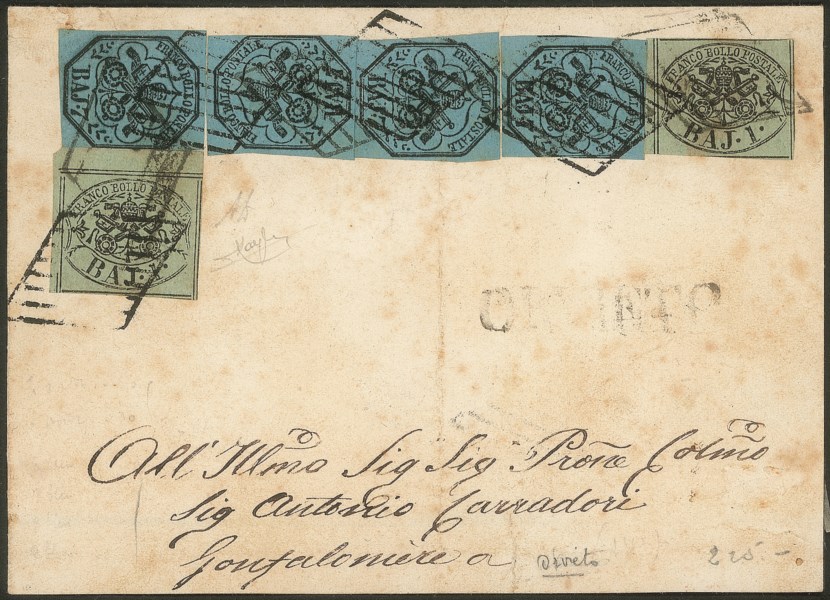 FRANCO BOLLO POSTALE
BAJ 7
FRANCO BOLLO POSTALE
BAJ 7
FRANCO BOLLO POSTALE
BAJ 7
FRANCO BOLLO POSTALE
BAJ 7
FRANCO BOLLO POSTALE
BAJ. 1.
FRANCO BOLLO POSTALE
BAJ. 1.
All' Illmo Sig Sig Proñe Colmo
Sig Antonio Carradori
Gonfaloniere a
Orvieto
225 -